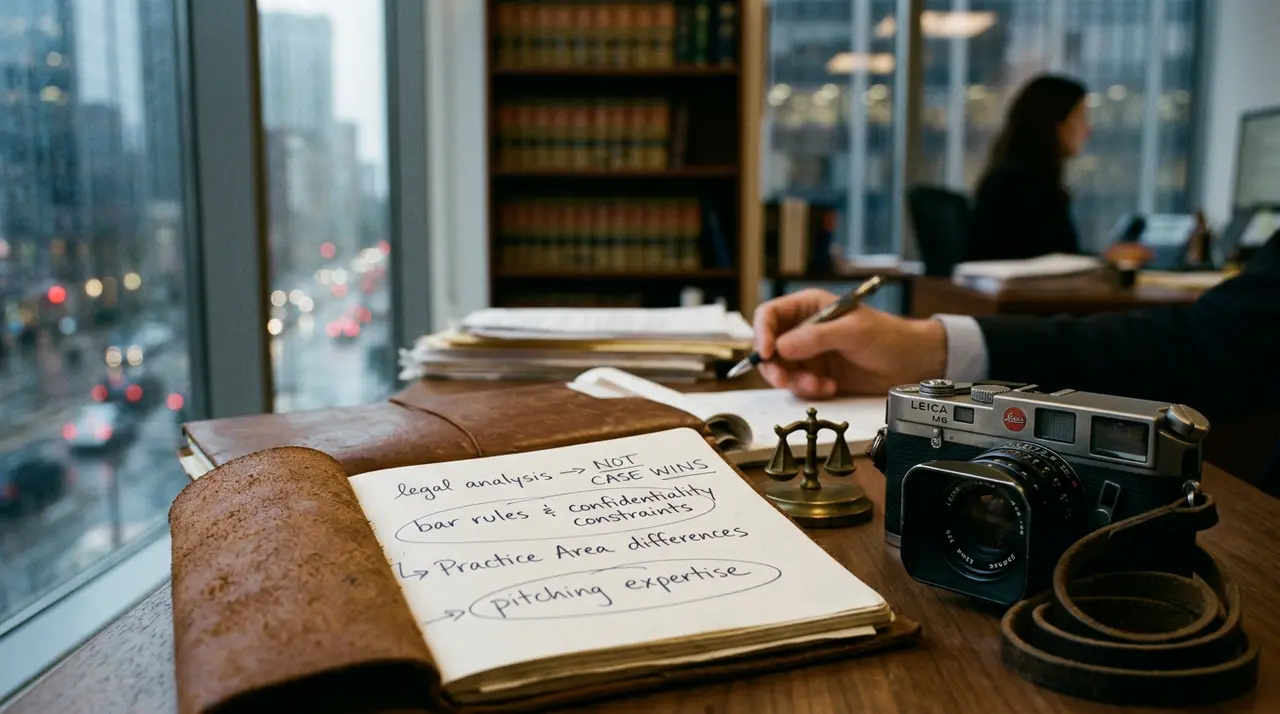 legal analysis → NOT
CASE WINS
bar rules & confidentiality
constraints
↳ Practice Area differences
→ pitching expertise
LEICA
M6
Leica